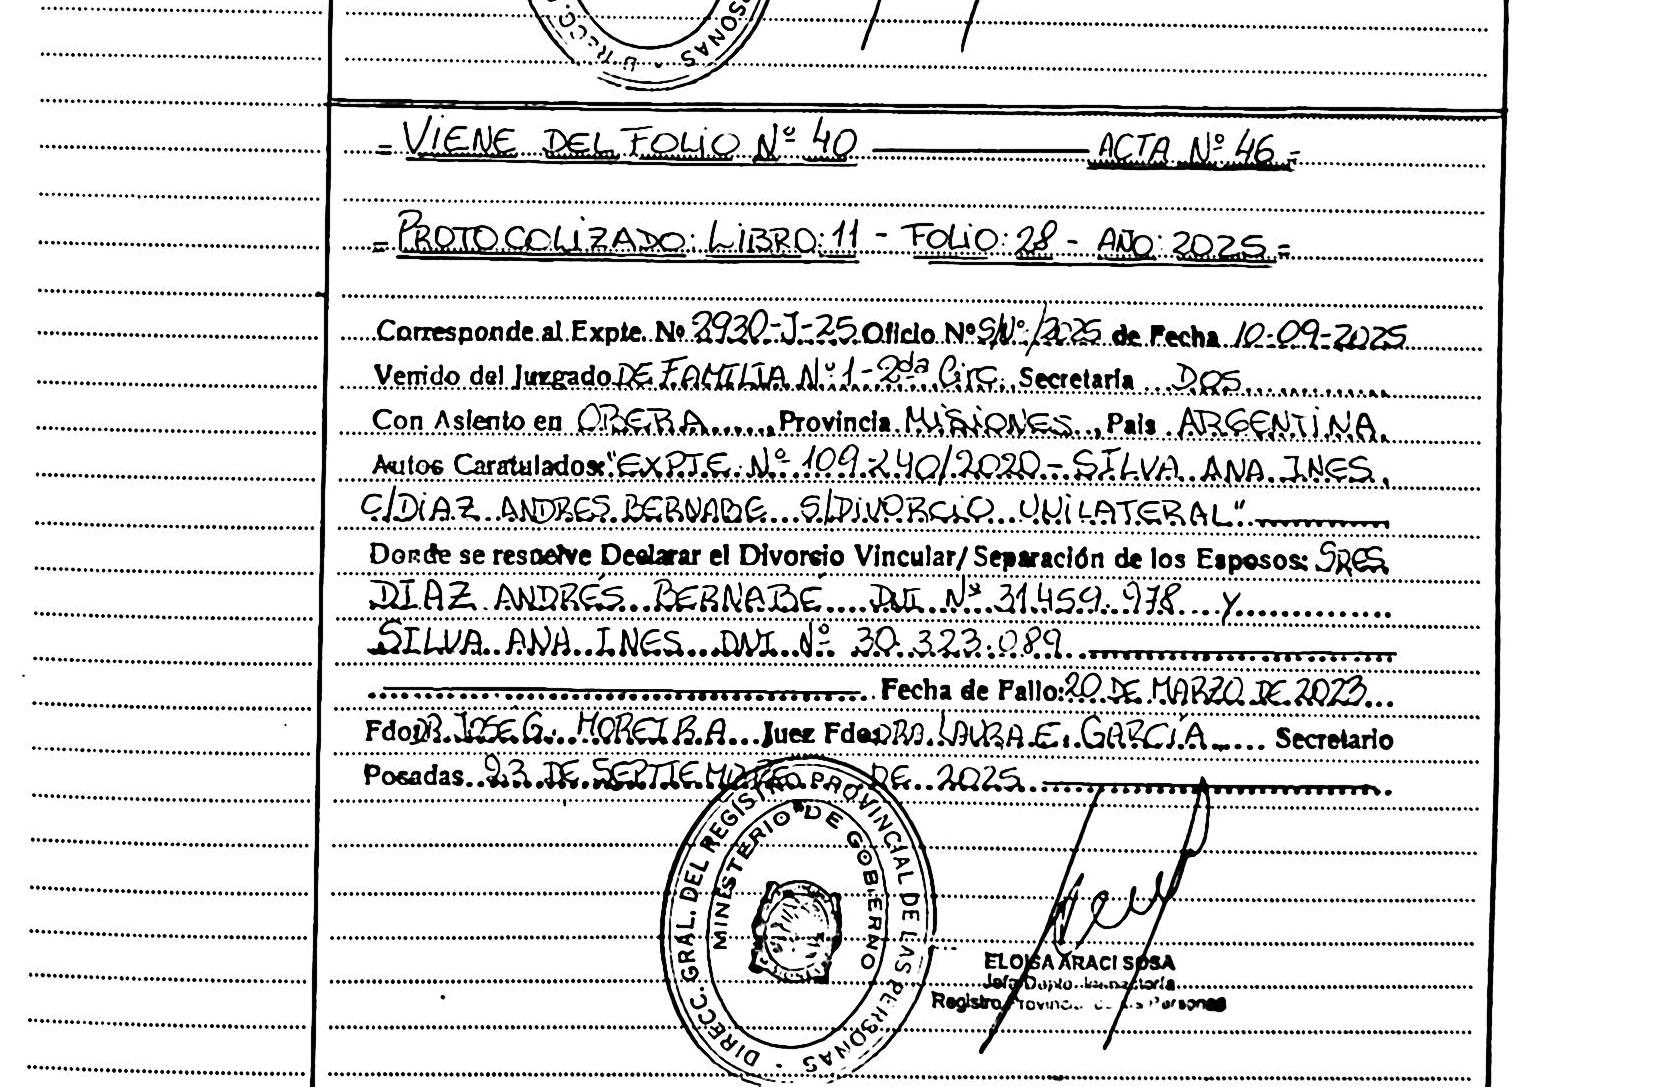 DIRECC. PERSONAS
= VIENE DEL FOLIO Nº 40 ——— ACTA Nº 46 =
= PROTOCOLIZADO: LIBRO: 11 - FOLIO: 28 - AÑO: 2025 =
Corresponde al Expte. Nº 2930-J-25 Oficio Nº S/Nº/2025 de Fecha 10-09-2025
Venido del Juzgado DE FAMILIA Nº 1 - 2da Circ. Secretaría DOS
Con Asiento en OBERA, Provincia MISIONES, País ARGENTINA.
Autos Caratulados: "EXPTE. Nº 109.240/2020 - SILVA ANA INES
C/DIAZ ANDRES BERNABE S/DIVORCIO UNILATERAL"
Donde se resuelve Declarar el Divorcio Vincular/ Separación de los Esposos: SRES
DIAZ ANDRÉS BERNABÉ DNI Nº 31.459.978 Y
SILVA ANA INES DNI Nº 30.323.089
Fecha de Fallo: 20 DE MARZO DE 2023
Fdo: DR. JOSE G. MOREIRA Juez Fdo: DRA. LAURA E. GARCÍA Secretario
Posadas 23 DE SEPTIEMBRE DE 2025
DIRECC. GRAL. DEL REGISTRO PROVINCIAL DE LAS PERSONAS
MINISTERIO DE GOBIERNO
ELOISA ARACI SOSA
Jefa Dpto. Inspectoría
Registro Provincial de las Personas